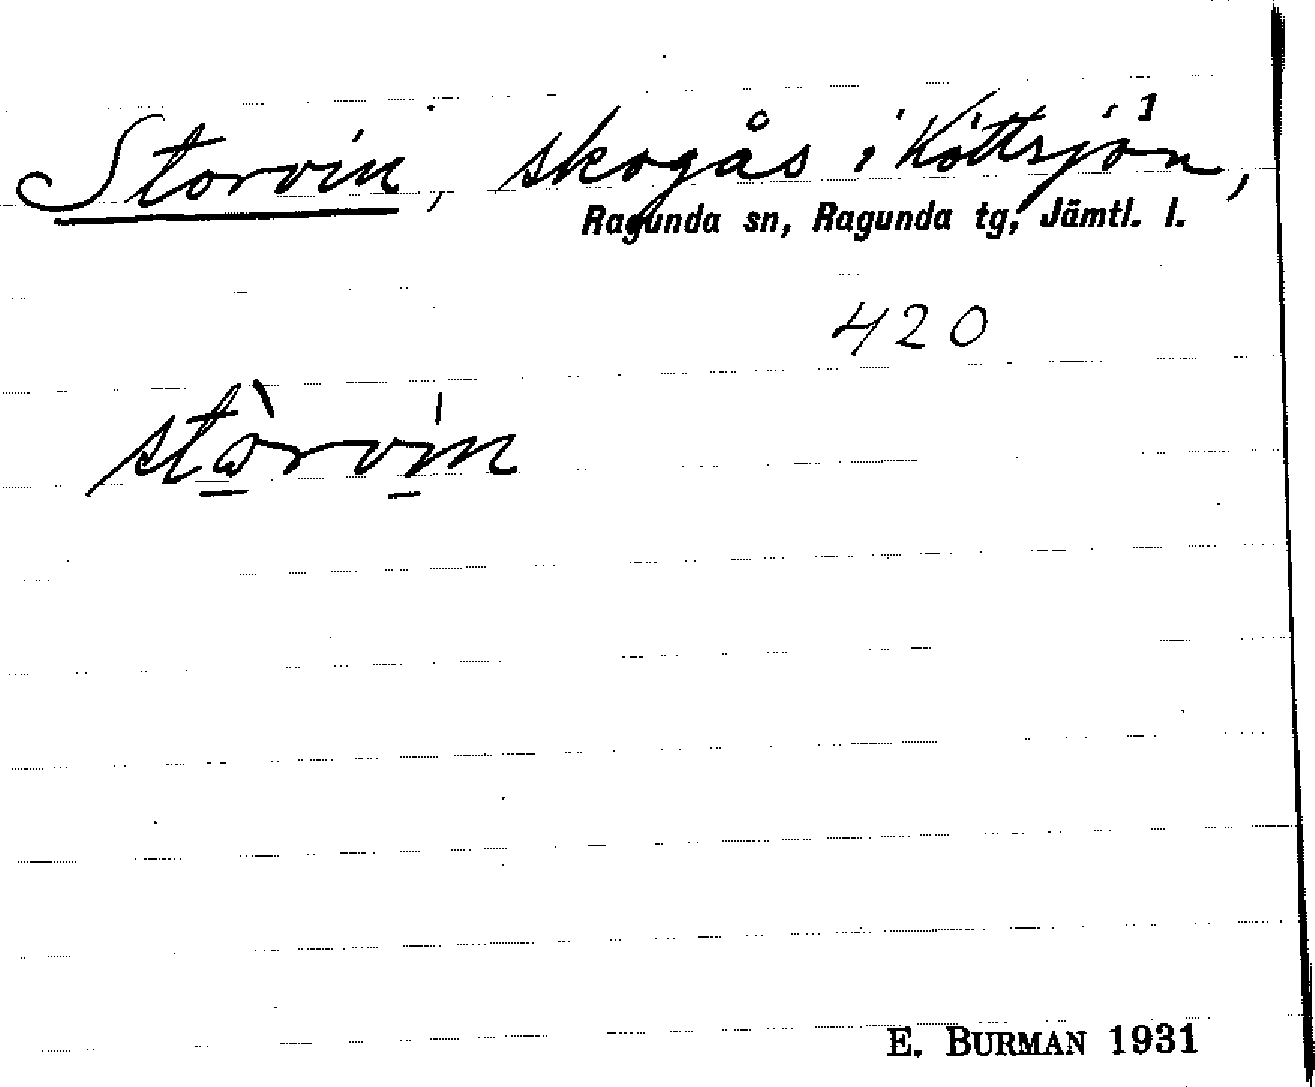 Storvin, skogås i Köttsjön,
Ragunda sn, Ragunda tg, Jämtl. l.
420
stòrvin
E. BURMAN 1931